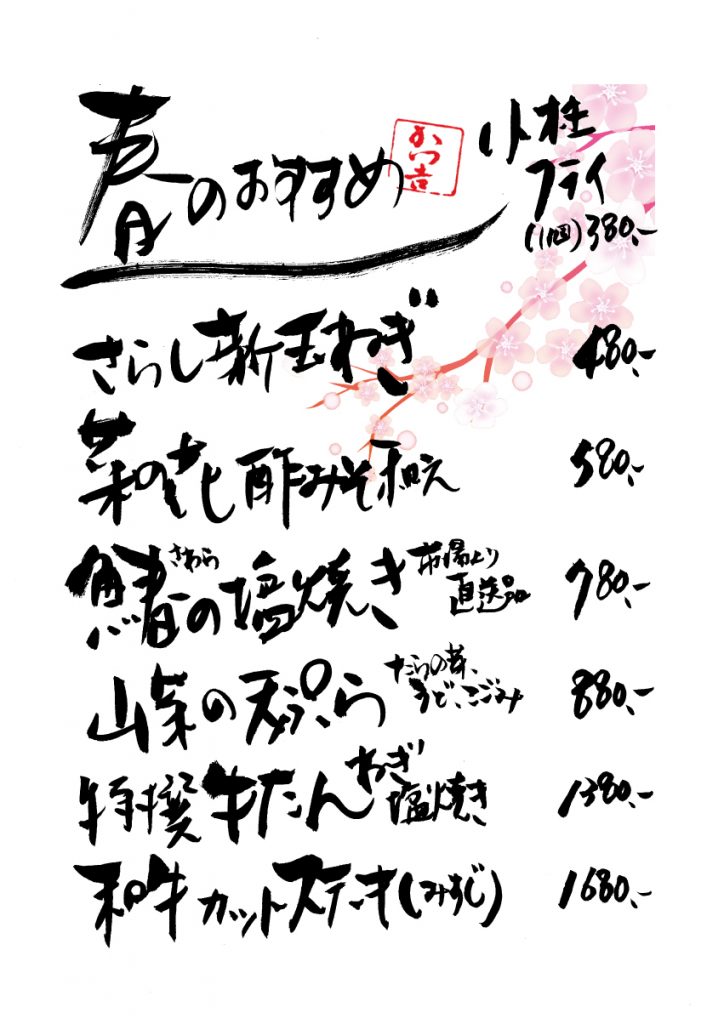 春のおすすめ
かつ吉
小柱
フライ
(1個) 380.-
さらし新玉ねぎ 480.-
菜の花酢みそ和え 580.-
鰆の塩焼き さわら 市場より 直送品 780.-
山菜の天ぷら たらの芽、うど、こごみ 880.-
特撰牛たんねぎ塩焼き 1380.-
和牛カットステーキ(みすじ) 1680.-